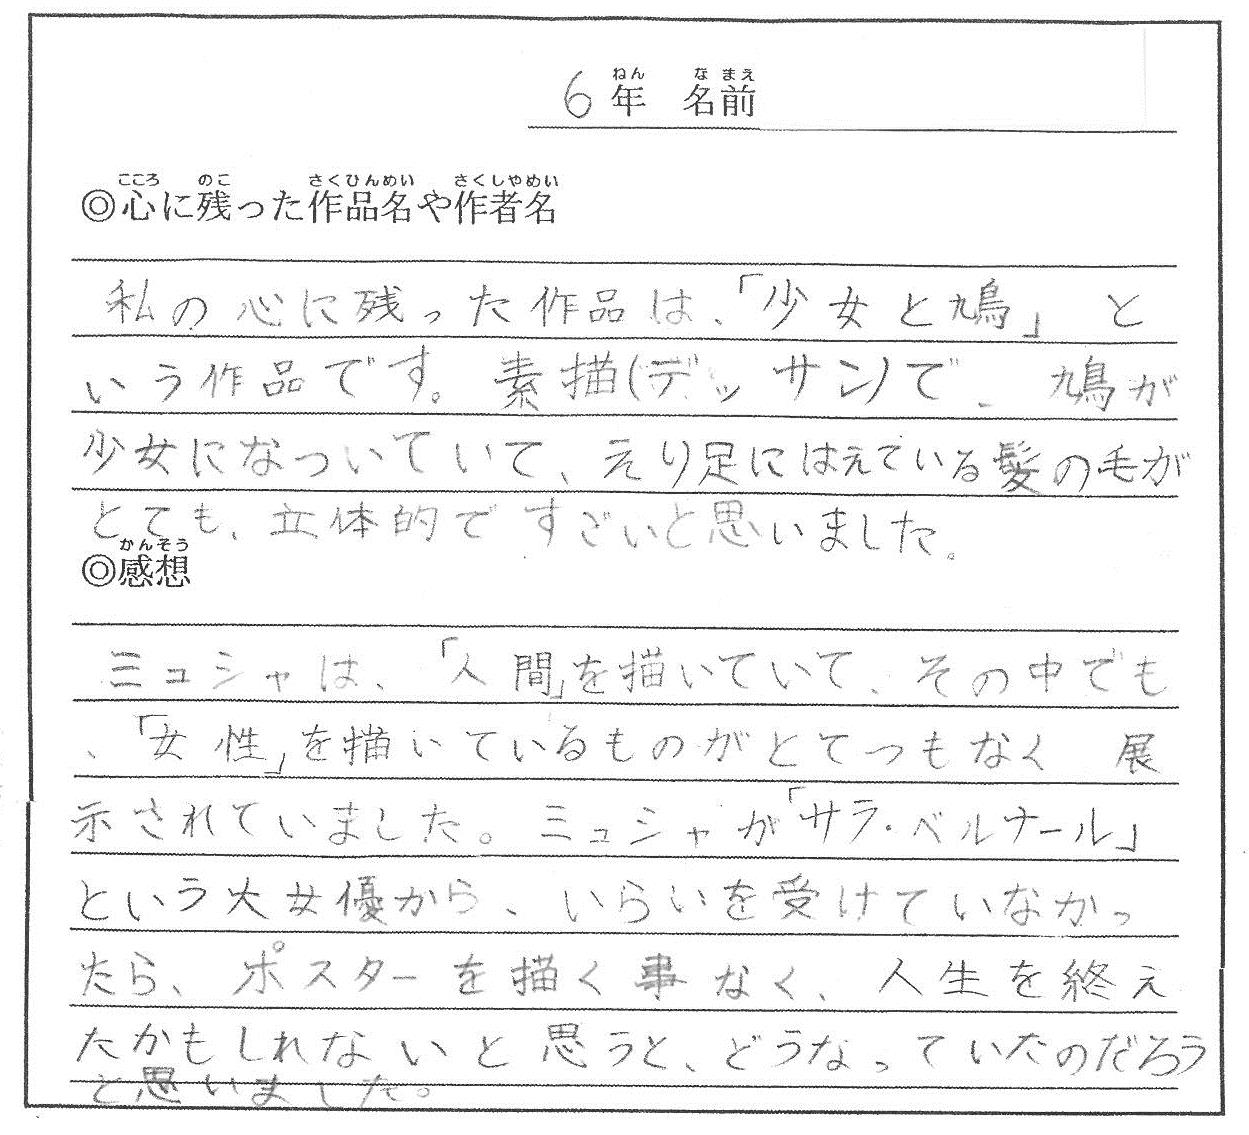 6年 名前
ねん な まえ
◎心に残った作品名や作者名
こころ のこ さくひんめい さくしゃめい
私の心に残った作品は、「少女と鳩」と
いう作品です。素描(デッサン)で、鳩が
少女になついていて、えり足にはえている髪の毛が
とても、立体的ですごいと思いました。
◎感想
かんそう
ミュシャは、「人間」を描いていて、その中でも
、「女性」を描いているものがとてつもなく 展
示されていました。ミュシャが「サラ・ベルナール」
という大女優から、いらいを受けていなかっ
たら、ポスターを描く事なく、人生を終え
たかもしれないと思うと、どうなっていたのだろう
と思いました。